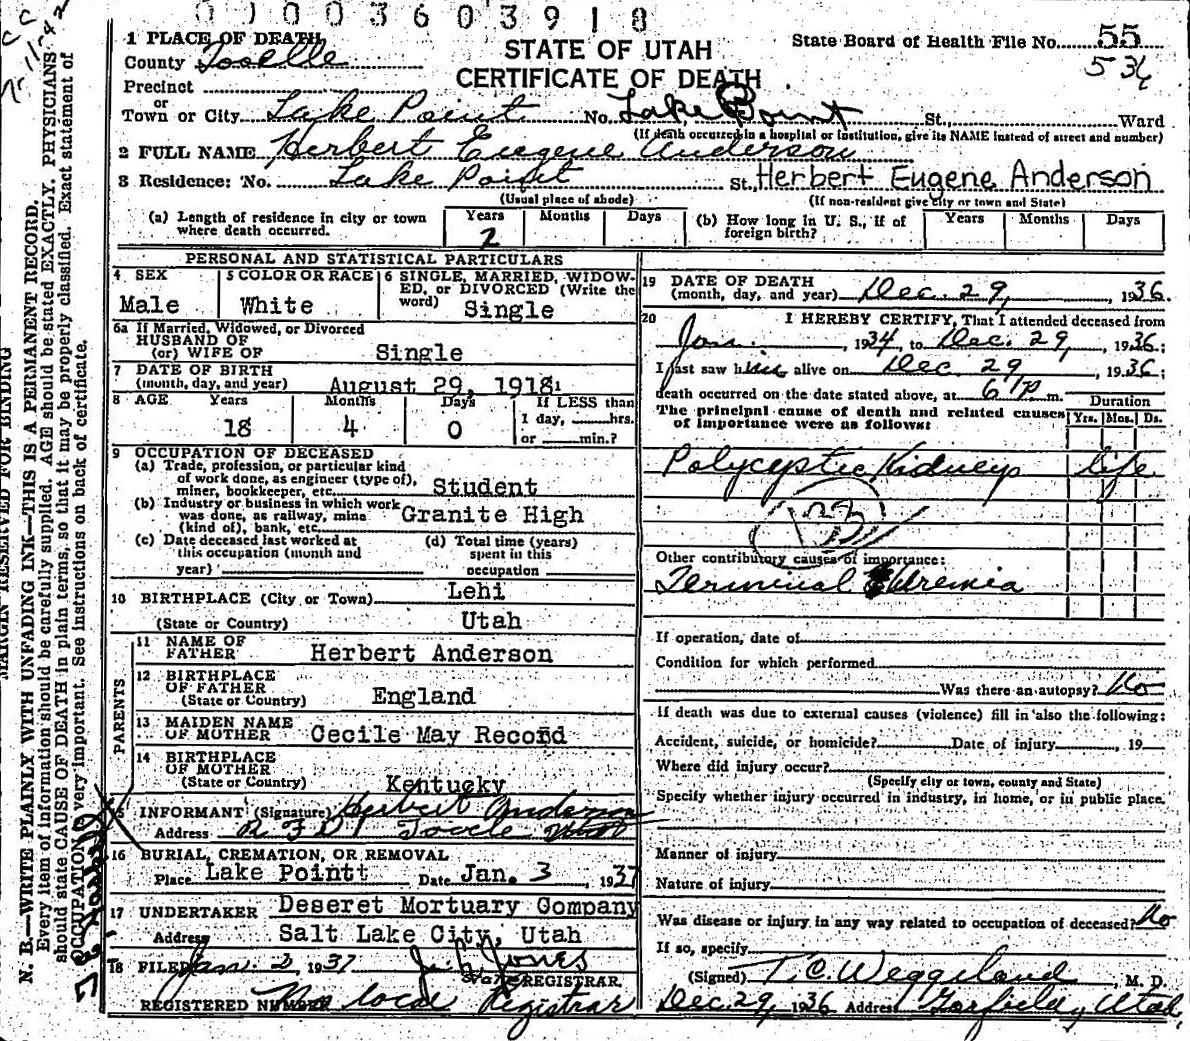 0 0 0 3 6 0 3 9 1 8
1 PLACE OF DEATH
County Tooelle
Precinct
or
Town or City Lake Point No. Lake Point St., Ward
(If death occurred in a hospital or institution, give its NAME instead of street and number)
STATE OF UTAH
CERTIFICATE OF DEATH
State Board of Health File No. 55
536
2 FULL NAME Herbert Eugene Anderson
3 Residence: No. Lake Point St., Herbert Eugene Anderson
(Usual place of abode) (If non-resident give city or town and State)
(a) Length of residence in city or town where death occurred. Years 2 Months Days
(b) How long in U. S., if of foreign birth? Years Months Days
PERSONAL AND STATISTICAL PARTICULARS
4 SEX Male
5 COLOR OR RACE White
6 SINGLE, MARRIED, WIDOWED, or DIVORCED (Write the word) Single
6a If Married, Widowed, or Divorced
HUSBAND OF
(or) WIFE OF Single
7 DATE OF BIRTH
(month, day, and year) August 29, 1918
8 AGE Years 18 Months 4 Days 0 If LESS than 1 day, hrs. or min.?
9 OCCUPATION OF DECEASED
(a) Trade, profession, or particular kind of work done, as engineer (type of), miner, bookkeeper, etc. Student
(b) Industry or business in which work was done, as railway, mine (kind of), bank, etc. Granite High
(c) Date deceased last worked at this occupation (month and year)
(d) Total time (years) spent in this occupation
10 BIRTHPLACE (City or Town) Lehi
(State or Country) Utah
PARENTS
11 NAME OF FATHER Herbert Anderson
12 BIRTHPLACE OF FATHER (State or Country) England
13 MAIDEN NAME OF MOTHER Cecile May Record
14 BIRTHPLACE OF MOTHER (State or Country) Kentucky
15 INFORMANT (Signature) Herbert Anderson
Address R F D 1 Tooele Utah
16 BURIAL, CREMATION, OR REMOVAL
Place Lake Pointt Date Jan. 3, 1937
17 UNDERTAKER Deseret Mortuary Company
Address Salt Lake City, Utah
18 FILED Jan. 2, 1937 J. Jones
State REGISTRAR.
REGISTERED NUMBER No local Registrar
19 DATE OF DEATH
(month, day, and year) Dec. 29, 1936.
20 I HEREBY CERTIFY, That I attended deceased from
Jan. , 1934, to Dec. 29, 1936;
I last saw him alive on Dec 29, 1936;
death occurred on the date stated above, at 6 1 P m.
The principal cause of death and related causes of importance were as follows:
Duration
Yrs. Mos. Ds.
Polycyptic Kidneys life
Other contributory causes of importance:
Terminal Uremia
If operation, date of
Condition for which performed
Was there an autopsy? No
If death was due to external causes (violence) fill in also the following:
Accident, suicide, or homicide? Date of injury , 19
Where did injury occur?
(Specify city or town, county and State)
Specify whether injury occurred in industry, in home, or in public place.
Manner of injury
Nature of injury
Was disease or injury in any way related to occupation of deceased? No
If so, specify
(Signed) T. C. Weggeland, M. D.
Dec 29, 1936 Address Garfield, Utah
MARGIN RESERVED FOR BINDING
N. B.—WRITE PLAINLY WITH UNFADING INK—THIS IS A PERMANENT RECORD.
Every item of information should be carefully supplied. AGE should be stated EXACTLY. PHYSICIANS
should state CAUSE OF DEATH in plain terms, so that it may be properly classified. Exact statement of
OCCUPATION is very important. See instructions on back of certificate.